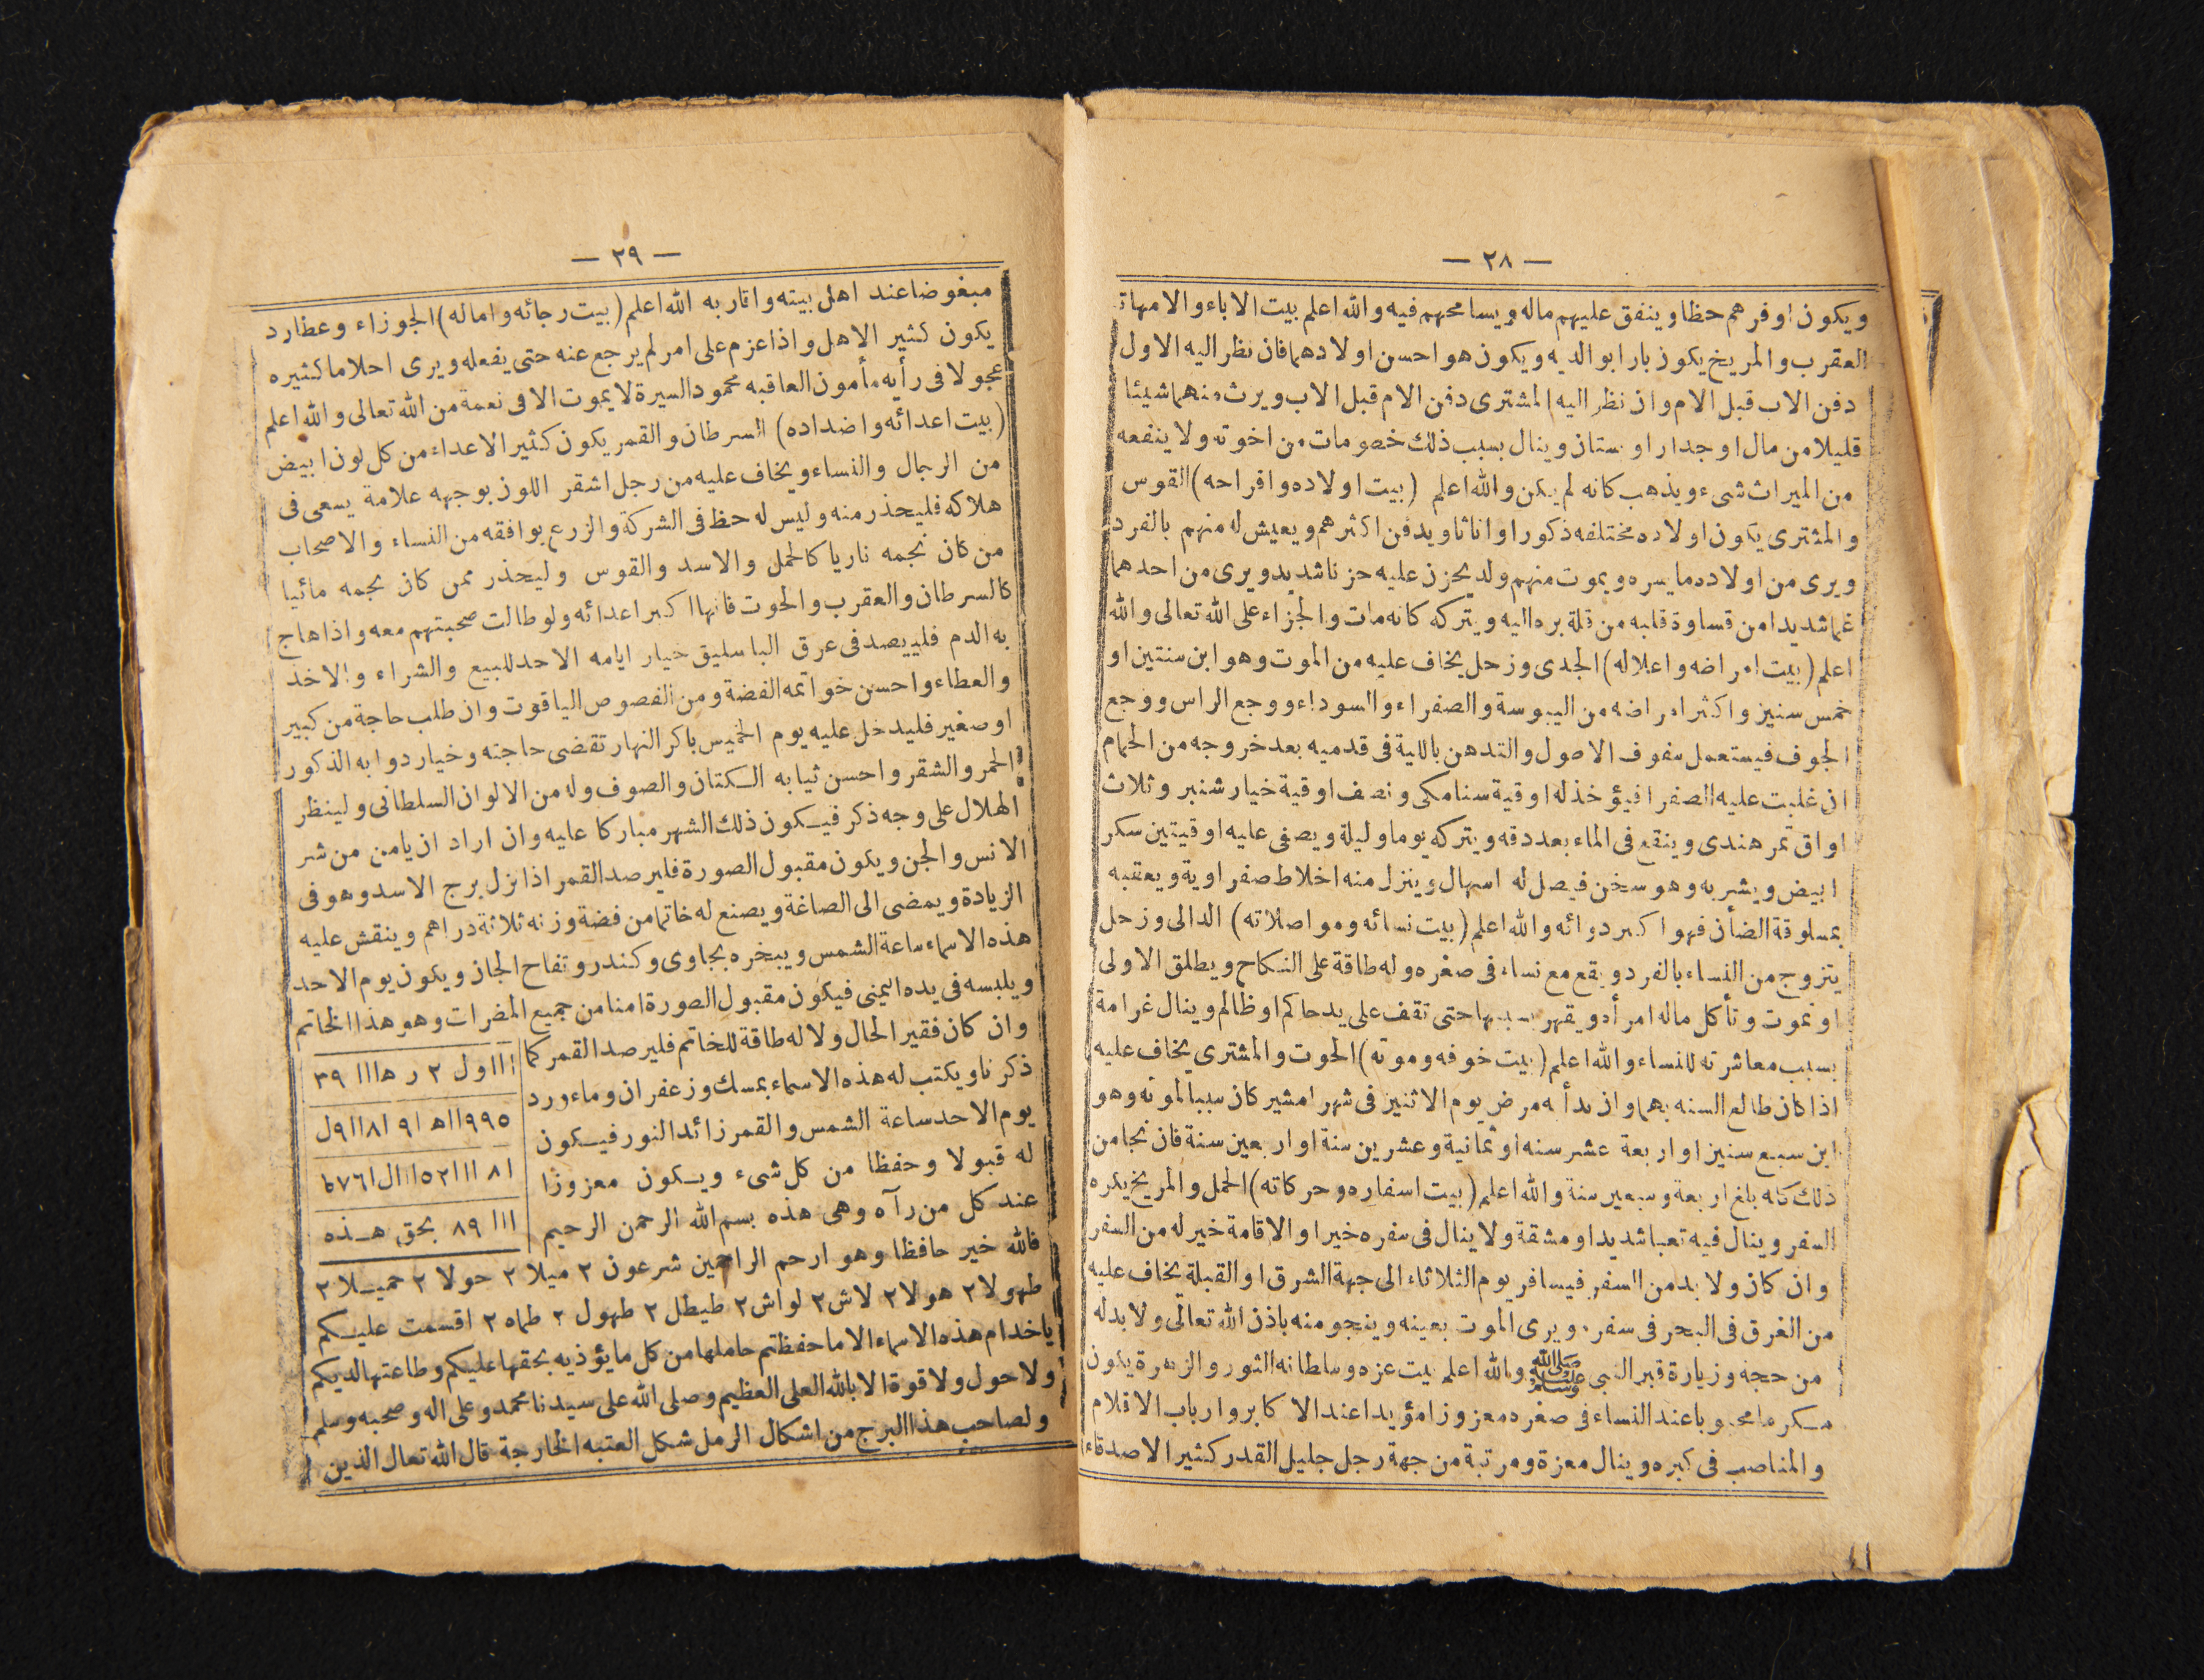 — ٢٨ —
ويكون اوفرهم حظا وينفق عليهم ماله ويسامحهم فيه والله اعلم بيت الاباء والامهات
العقرب والمريخ يكون بارا بوالديه ويكون هو احسن اولادهما فان نظر اليه الاول
دفن الاب قبل الام وان نظر اليه المشترى دفن الام قبل الاب ويرث منهما شيئا
قليلا من مال او جدار او بستان وينال بسبب ذلك خصومات من اخوته ولا ينفعه
من الميراث شىء ويذهب كانه لم يكن والله اعلم (بيت اولاده وافراحه) القوس
والمشترى يكون اولاده مختلفه ذكورا واناثا ويدفن اكثرهم ويعيش له منهم بالفرد
ويرى من اولاده ما يسره ويموت منهم ولد يحزن عليه حزنا شديد ويرى من احدهما
غما شديدا من قساوة قلبه من قلة بره اليه ويتركه كانه مات والجزاء على الله تعالى والله
اعلم (بيت امراضه واعلاله) الجدى وزحل يخاف عليه من الموت وهو ابن سنتين او
خمس سنين واكثر امراضه من اليبوسة والصفراء والسوداء ووجع الراس ووجع
الجوف فيستعمل سفوف الاصول والتدهن باللية فى قدميه بعد خروجه من الحمام
ان غلبت عليه الصفرا فيؤخذ له اوقية سنامكى ونصف اوقية خيار شنبر وثلاث
اواق تمر هندى وينقع فى الماء بعد دقه ويتركه يوما وليلة ويصفى عليه اوقيتين سكر
ابيض ويشربه وهو سخن فيصل له اسهال وينزل منه اخلاط صفراوية ويعقبه
بمسلوقة الضأن فهو اكبر دوائه والله اعلم (بيت نسائه ومواصلاته) الدالى وزحل
يتزوج من النساء بالفرد ويقع مع نساء فى صغره وله طاقة على النكاح ويطلق الاولى
او تموت وتأكل ماله امرأه ويقهر بسببها حتى تقف على يد حاكم او ظالم وينال غرامة
بسبب معاشرته للنساء والله اعلم (بيت خوفه وموته) الحوت والمشترى يخاف عليه
اذا كان طالع السنه بهما وان بدأ به مرض يوم الاثنين فى شهر امشير كان سببا لموته وهو
ابن سبع سنين او اربعة عشر سنه او ثمانية وعشرين سنة او اربعين سنة فان نجا من
ذلك كله بلغ اربعة وسبعين سنة والله اعلم (بيت اسفاره وحركاته) الحمل والمريخ يكره
السفر وينال فيه تعبا شديدا ومشقة ولا ينال فى سفره خيرا والاقامة خير له من السفر
وان كان ولا بد من السفر فيسافر يوم الثلاثاء الى جهة الشرق او القبلة يخاف عليه
من الغرق فى البحر فى سفره ويرى الموت بعينه وينجو منه باذن الله تعالى ولا بد له
من حجه وزيارة قبر النبى ﷺ والله اعلم بيت عزه وسلطانه الثور والزهرة يكون
مكرما محبوبا عند النساء فى صغره معزوزا مؤيدا عند الاكابر وارباب الاقلام
والمناصب فى كبره وينال معزة ومرتبة من جهة رجل جليل القدر كثير الاصدقاء
— ٢٩ —
مبغوضا عند اهل بيته واقاربه الله اعلم (بيت رجائه واماله) الجوزاء وعطارد
يكون كثير الاهل واذا عزم على امر لم يرجع عنه حتى يفعله ويرى احلاما كثيره
عجولا فى رأيه مأمون العاقبه محمود السيرة لا يموت الا فى نعمة من الله تعالى والله اعلم
(بيت اعدائه واضداده) السرطان والقمر يكون كثير الاعداء من كل لون ابيض
من الرجال والنساء ويخاف عليه من رجل اشقر اللون بوجهه علامة يسعى فى
هلاكه فليحذر منه وليس له حظ فى الشركة والزرع يوافقه من النساء والاصحاب
من كان نجمه ناريا كالحمل والاسد والقوس وليحذر ممن كان نجمه مائيا
كالسرطان والعقرب والحوت فانها اكبر اعدائه ولو طالت صحبتهم معه واذا هاج
به الدم فلييصد فى عرق الباسليق خيار ايامه الاحد للبيع والشراء والاخذ
والعطاء واحسن خواتمه الفضة ومن الفصوص الياقوت وان طلب حاجة من كبير
او صغير فليدخل عليه يوم الخميس باكر النهار تقضى حاجته وخيار دوابه الذكور
الحمر والشقر واحسن ثيابه الكتان والصوف وله من الالوان السلطانى ولينظر
الهلال على وجه ذكر فيكون ذلك الشهر مباركا عليه وان اراد ان يامن من شر
الانس والجن ويكون مقبول الصورة فليرصد القمر اذا نزل برج الاسد وهو فى
الزيادة ويمضى الى الصاغة ويصنع له خاتما من فضة وزنه ثلاثة دراهم وينقش عليه
هذه الاسماء ساعة الشمس ويبخره بجاوى وكندر وتفاح الجان ويكون يوم الاحد
ويلبسه فى يده اليمنى فيكون مقبول الصورة امنا من جميع المضرات وهو هذا الخاتم
وان كان فقير الحال ولا له طاقة للخاتم فليرصد القمر كما
ذكرنا ويكتب له هذه الاسماء بمسك وزعفران وماء ورد
يوم الاحد ساعة الشمس والقمر زائد النور فيكون
له قبولا وحفظا من كل شىء ويكون معزوزا
عند كل من رآه وهى هذه بسم الله الرحمن الرحيم
ااا ول ٢ ر ها ااا ٣٩
٩٩٥ ااه ا٩ ا٨ اا ٩ل
ا ٨ ااا ٥٢ اا ال ا ٧٦ ط
ااا ٨٩ بحق هذه
فالله خير حافظا وهو ارحم الراحمين شرعون ٢ ميلا ٢ حولا ٢ حميلا ٢
طهولا ٢ هولا ٢ لاش ٢ لواش ٢ طيطل ٢ طهول ٢ طماه ٢ اقسمت عليكم
ياخدام هذه الاسماء الا ما حفظتم حاملها من كل ما يؤذيه بحقها عليكم وطاعتها لديكم
ولا حول ولا قوة الا بالله العلى العظيم وصلى الله على سيدنا محمد وعلى اله وصحبه وسلم
ولصاحب هذا البرج من اشكال الرمل شكل العتبه الخارجة قال الله تعال الذين